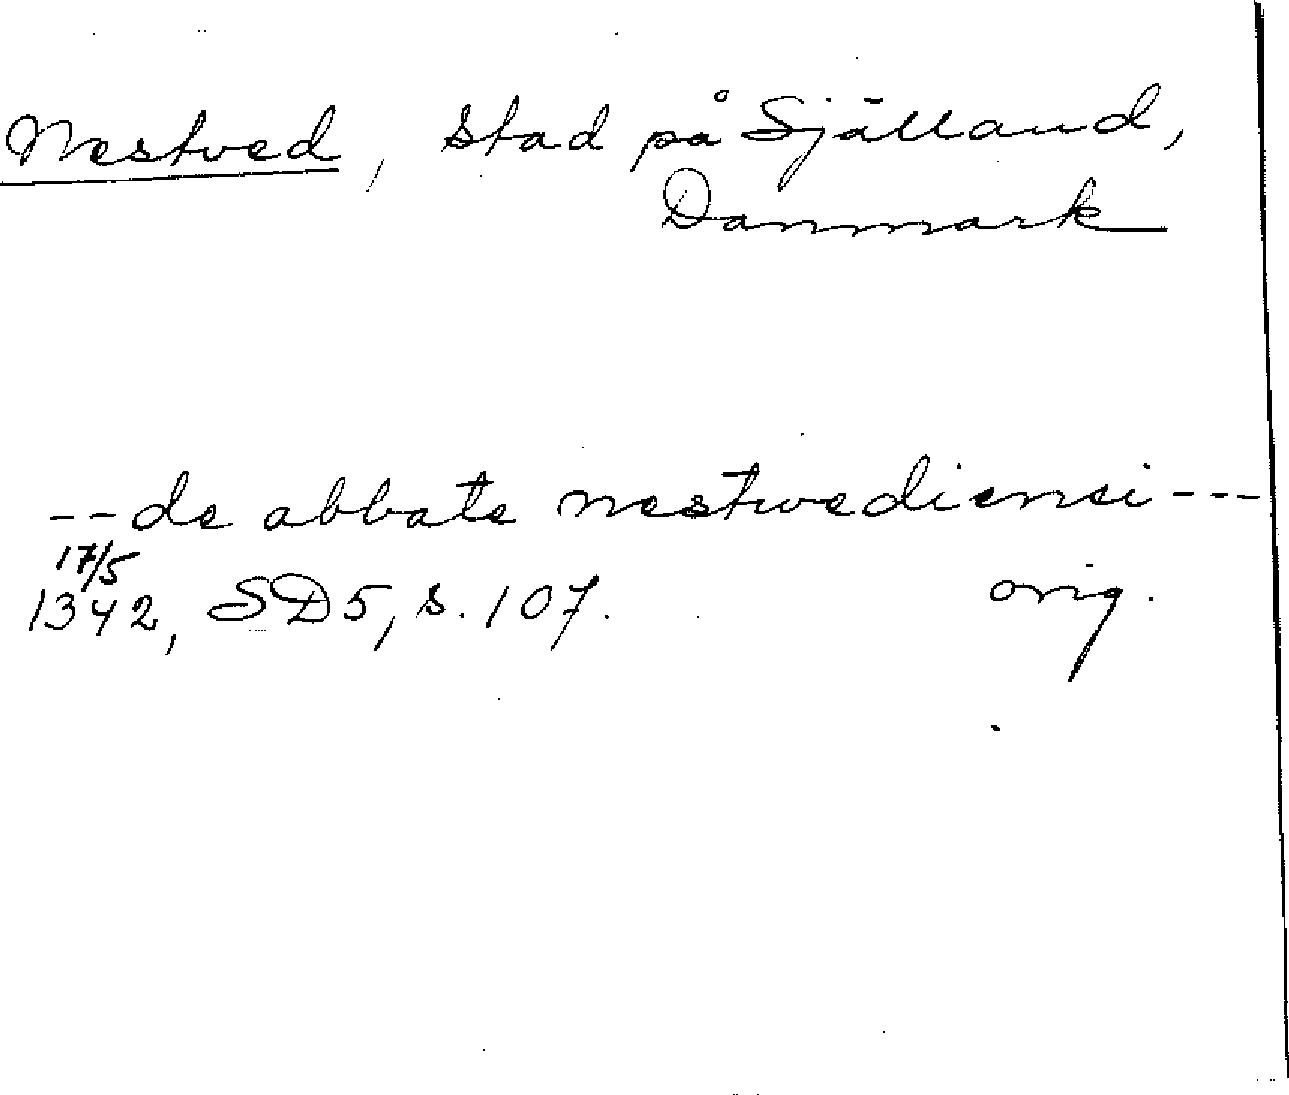 Nestved, stad på Själland,
Danmark
-- de abbate nestwediensi ---
17/5
1342, SD5, s. 107. orig.